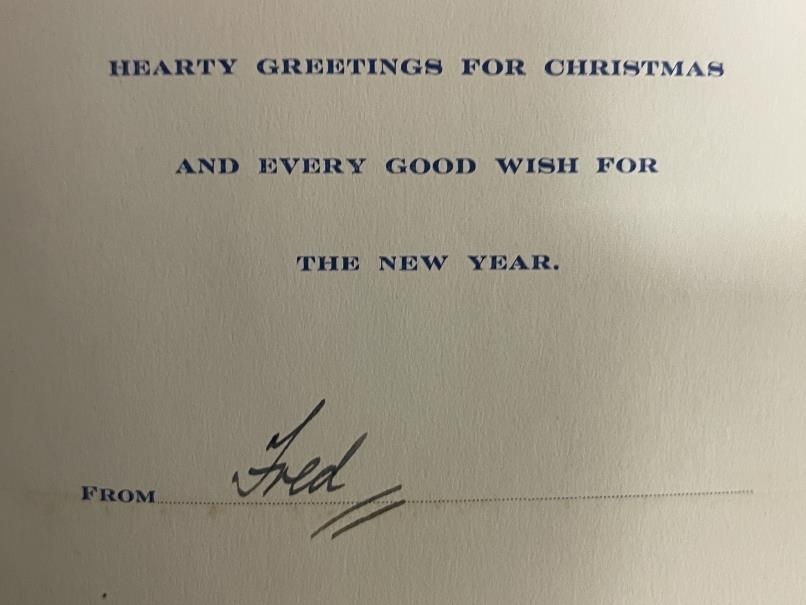 HEARTY GREETINGS FOR CHRISTMAS
AND EVERY GOOD WISH FOR
THE NEW YEAR.
FROM Fred